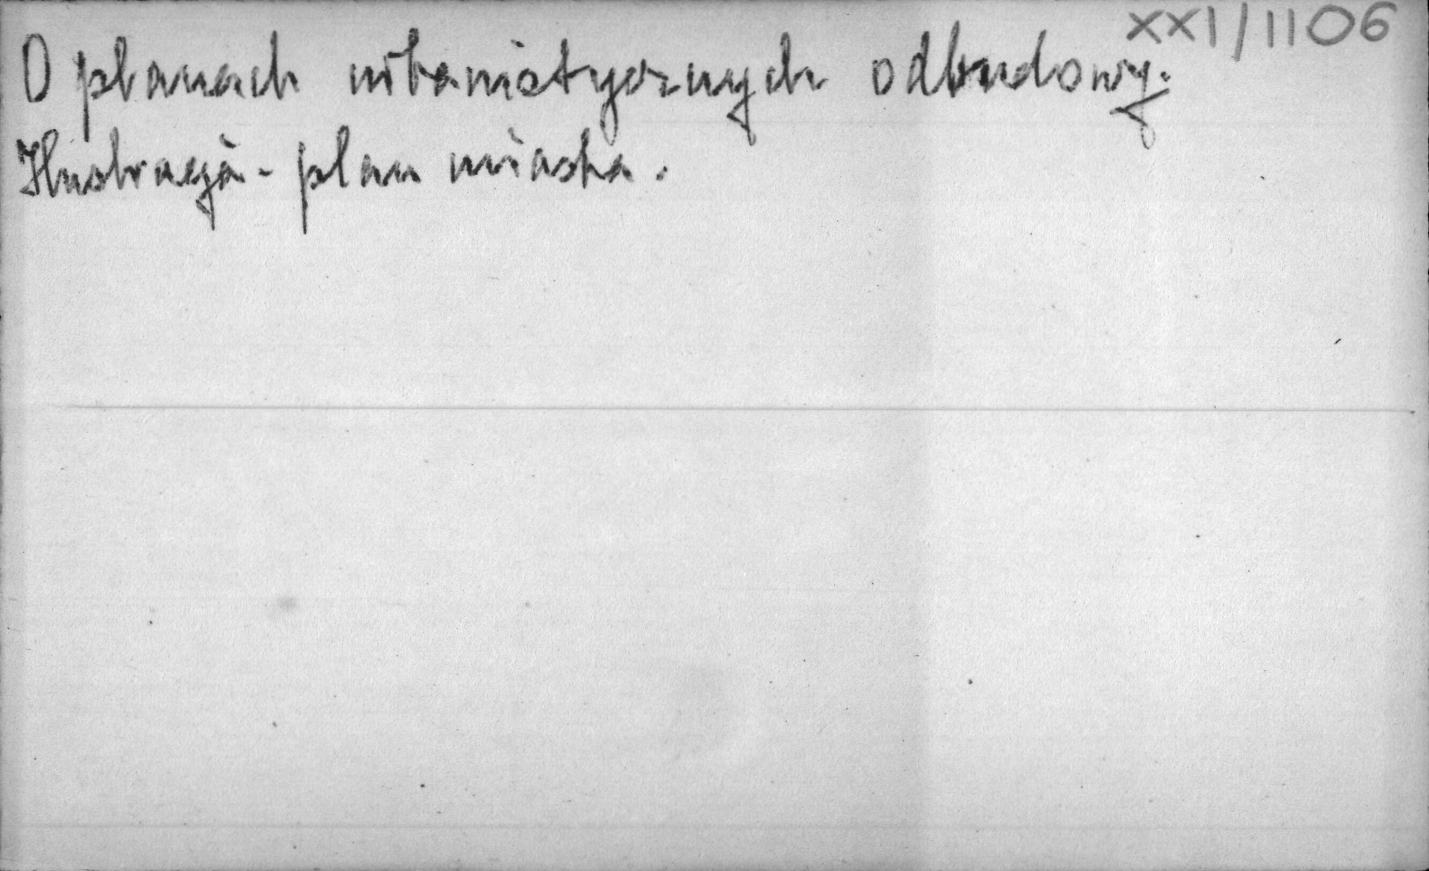 XXI/1106
O planach urbanistycznych odbudowy.
Ilustracja - plan miasta.